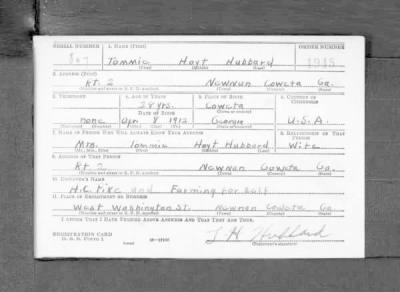 SERIAL NUMBER 1. NAME (Print) ORDER NUMBER
867 Tommie Hoyt Hubbard 1945
(First) (Middle) (Last)
2. ADDRESS (Print)
Rt. 2 Newnan Coweta Ga.
(Number and street or R. F. D. number) (Town) (County) (State)
3. TELEPHONE 4. AGE IN YEARS 5. PLACE OF BIRTH 6. COUNTRY OF CITIZENSHIP
28 yrs. Coweta
DATE OF BIRTH (Town or county)
none Apr 8 1912 Georgia U.S.A.
(Exchange) (Number) (Mo.) (Day) (Yr.) (State or country)
7. NAME OF PERSON WHO WILL ALWAYS KNOW YOUR ADDRESS 8. RELATIONSHIP OF THAT PERSON
Mrs. Tommie Hoyt Hubbard Wife
(Mr., Mrs., Miss) (First) (Middle) (Last)
9. ADDRESS OF THAT PERSON
Rt 2 Newnan Coweta Ga.
(Number and street or R. F. D. number) (Town) (County) (State)
10. EMPLOYER'S NAME
and Farming for self
11. PLACE OF EMPLOYMENT OR BUSINESS
West Washington St. Newnan Coweta Ga
(Number and street or R. F. D. number) (Town) (County) (State)
I AFFIRM THAT I HAVE VERIFIED ABOVE ANSWERS AND THAT THEY ARE TRUE.
REGISTRATION CARD
D. S. S. FORM 1 T H Hubbard
(Registrant's signature)